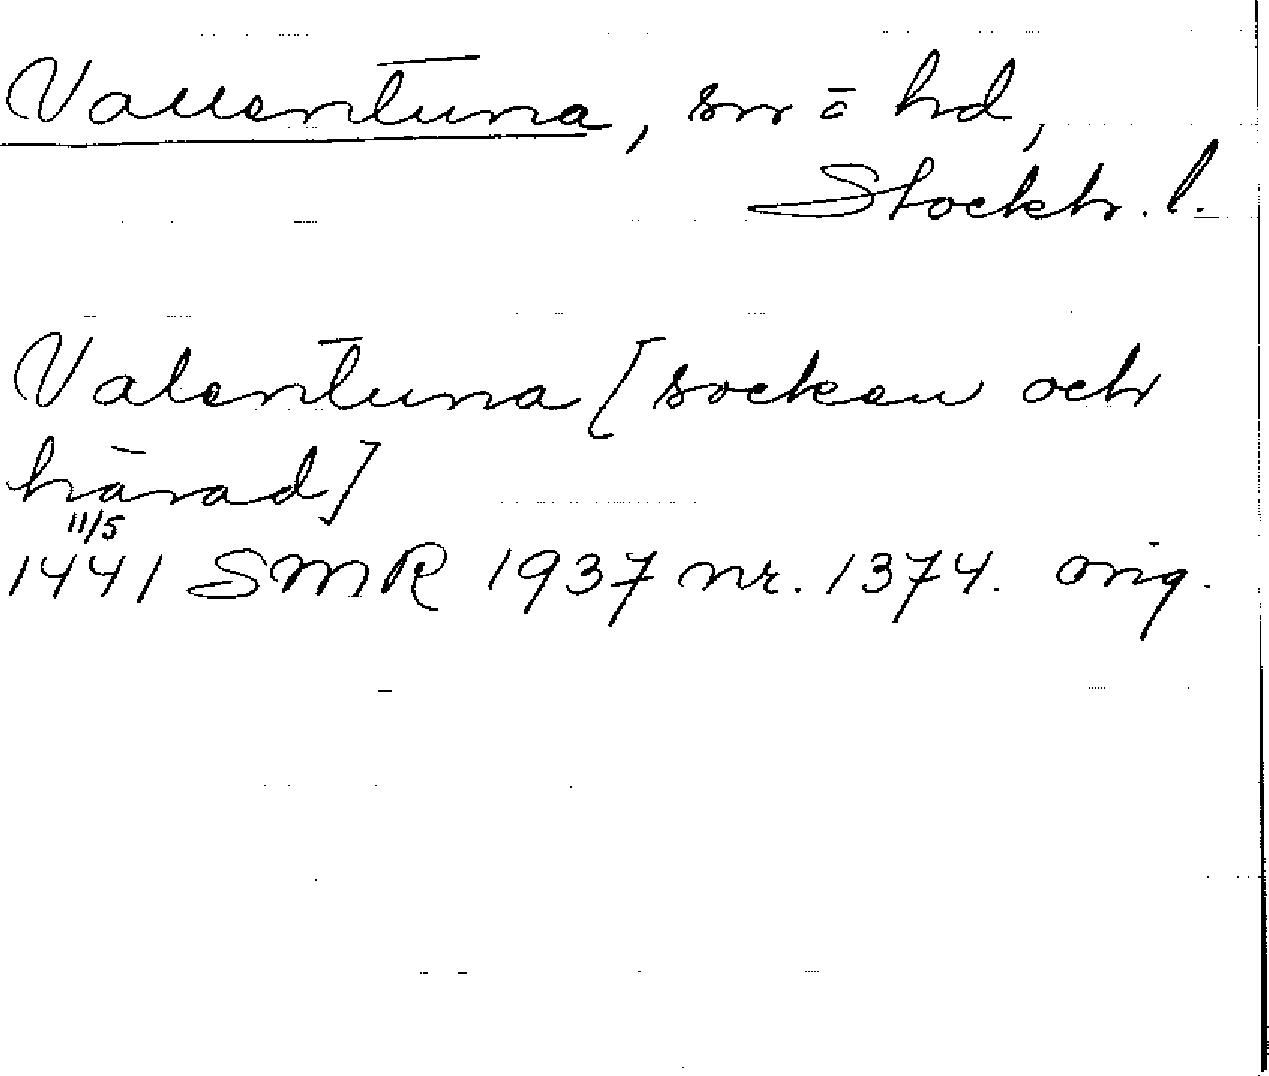 Vallentuna, sn o hd,
Stockh. l.
Valentuna [socken och
härad]
11/5
1441 SMR 1937 nr. 1374. orig.